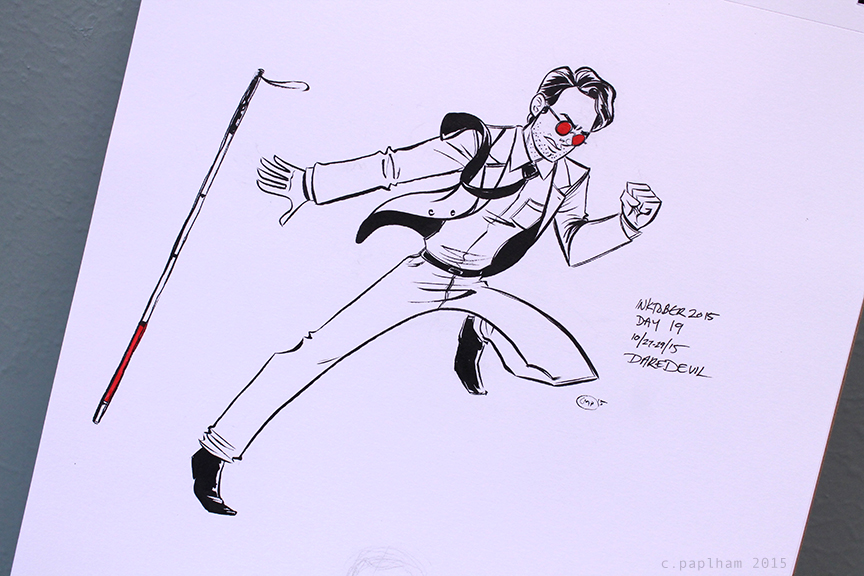 INKTOBER 2015
DAY 19
10/27-29/15
DAREDEVIL
CMP 15
c.paplham 2015